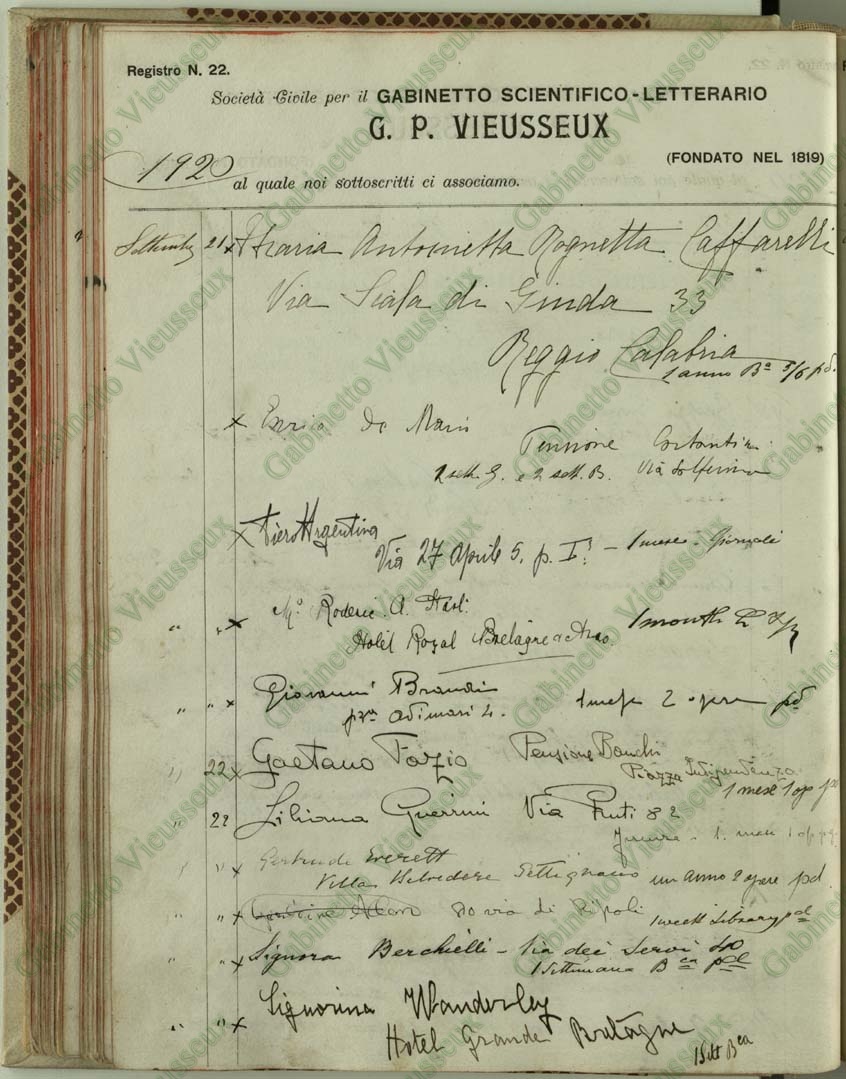 Registro N. 22.
Società Civile per il GABINETTO SCIENTIFICO-LETTERARIO
G. P. VIEUSSEUX
(FONDATO NEL 1819)
1920
al quale noi sottoscritti ci associamo.
Settembre 21 x Maria Antonietta Rognetta Caffarelli
Via Scala di Giuda 33
Reggio Calabria
1 anno Bª 5/6 pd.
x Enrico De Maris
Pensione Costantini
2 sett. G. e 2 sett. B. Via Solferino
x Piero Argentina
Via 27 Aprile 5. p. I° - 1 mese. Giornali
" " x Mr Roderic. A.
Hotel Royal Bretagne e Arno. 1 month
" " x Giovanni Brandi
pza Adimari 4. 1 mese 2 opere pd
" 22 x Gaetano Fazio Pensione Banchi
Piazza Indipendenza
1 mese 1 op
" 22 Liliana Guerrini Via 82
1. mese 1 op
" " x Gertrude Everett
Villa Belvedere Settignano un anno 2 opere pd.
" " x 80 via di Ripoli 1 week Library pd
" " x Signora Berchielli - Via dei Servi 40
1 Settimana Bca pd
" " x Signorina Wanderley
Hotel Grande Bretagne
1 Sett Bca
Gabinetto Vieusseux